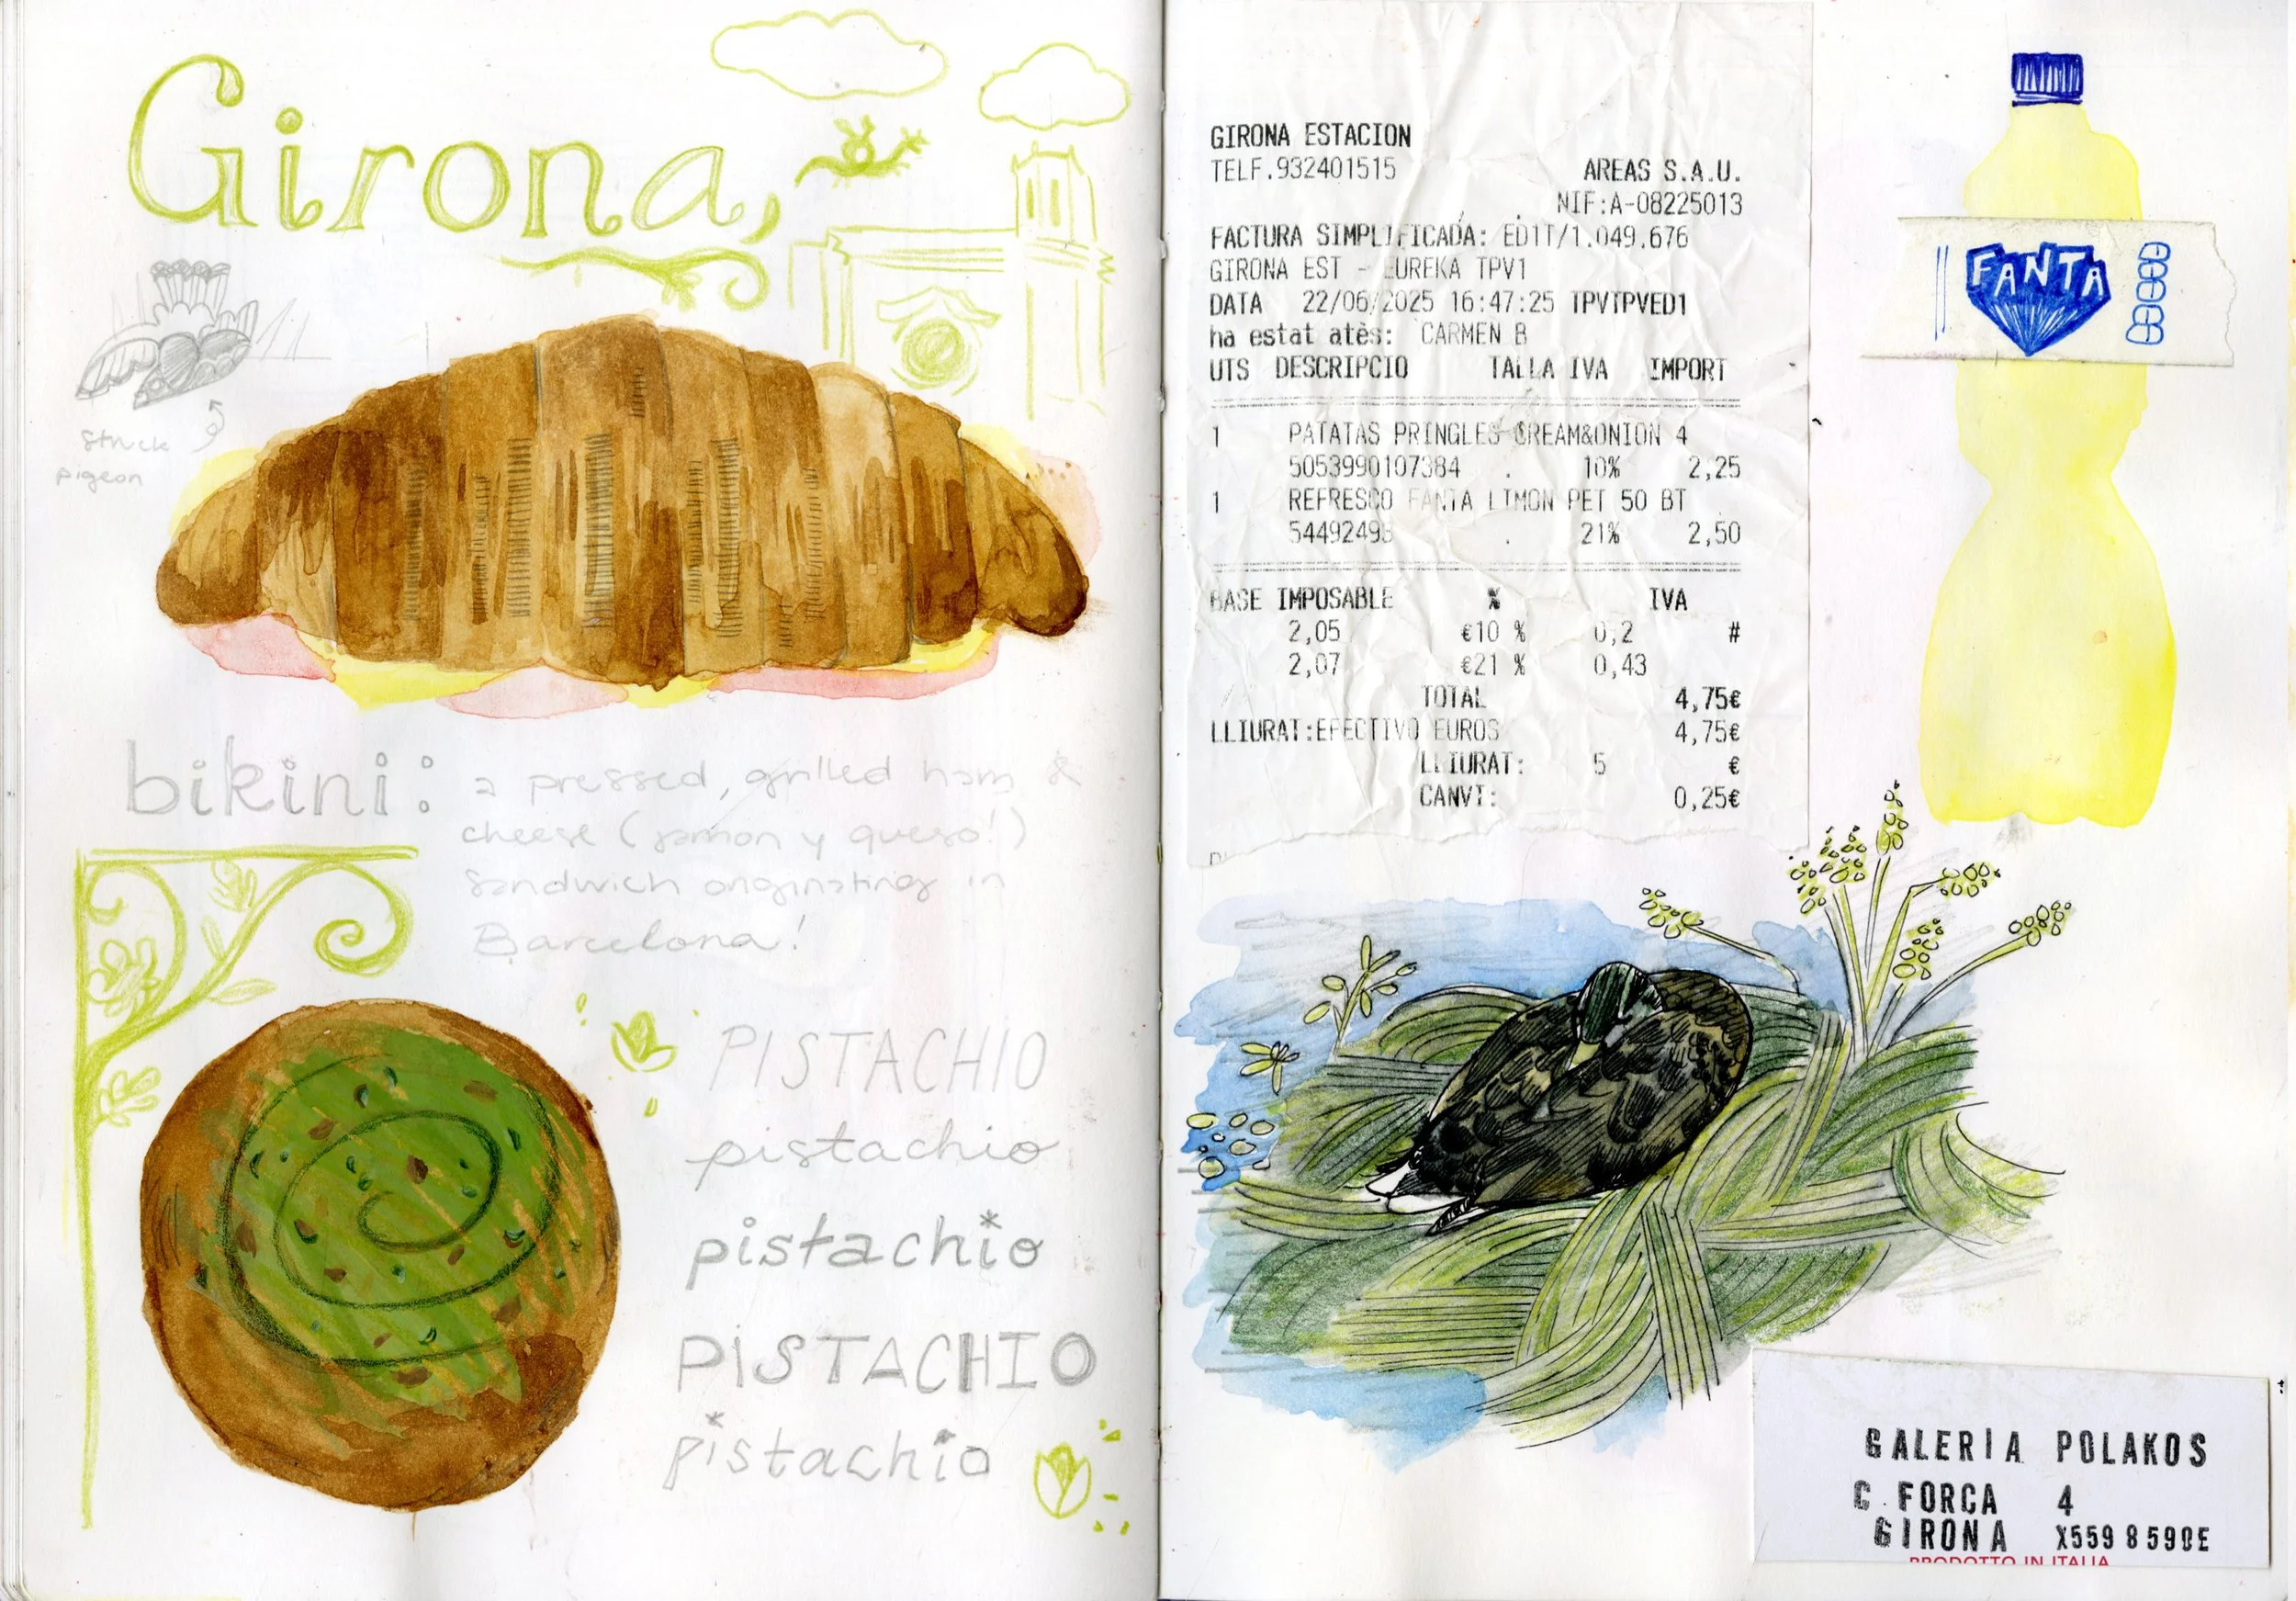 Girona,
struck
pigeon
bikini: a pressed, grilled ham &
cheese (jamon y queso!)
sandwich originating in
Barcelona!
PISTACHIO
pistachio
pistachio
PISTACHIO
pistachio
GIRONA ESTACION
TELF.932401515 AREAS S.A.U.
NIF:A-08225013
FACTURA SIMPLIFICADA: ED1T/1.049.676
GIRONA EST - EUREKA TPV1
DATA 22/06/2025 16:47:25 TPVTPVED1
ha estat atès: CARMEN B
UTS DESCRIPCIO TALLA IVA IMPORT
1 PATATAS PRINGLES CREAM&ONION 4
5053990107384 . 10% 2,25
1 REFRESCO FANTA LIMON PET 50 BT
5449249 . 21% 2,50
BASE IMPOSABLE % IVA
2,05 €10 % 0,2 #
2,07 €21 % 0,43
TOTAL 4,75€
LLIURAT:EFECTIVO EUROS 4,75€
LLIURAT: 5 €
CANVI: 0,25€
FANTA
GALERIA POLAKOS
C. FORCA 4
GIRONA X559 8590E
PRODOTTO IN ITALIA